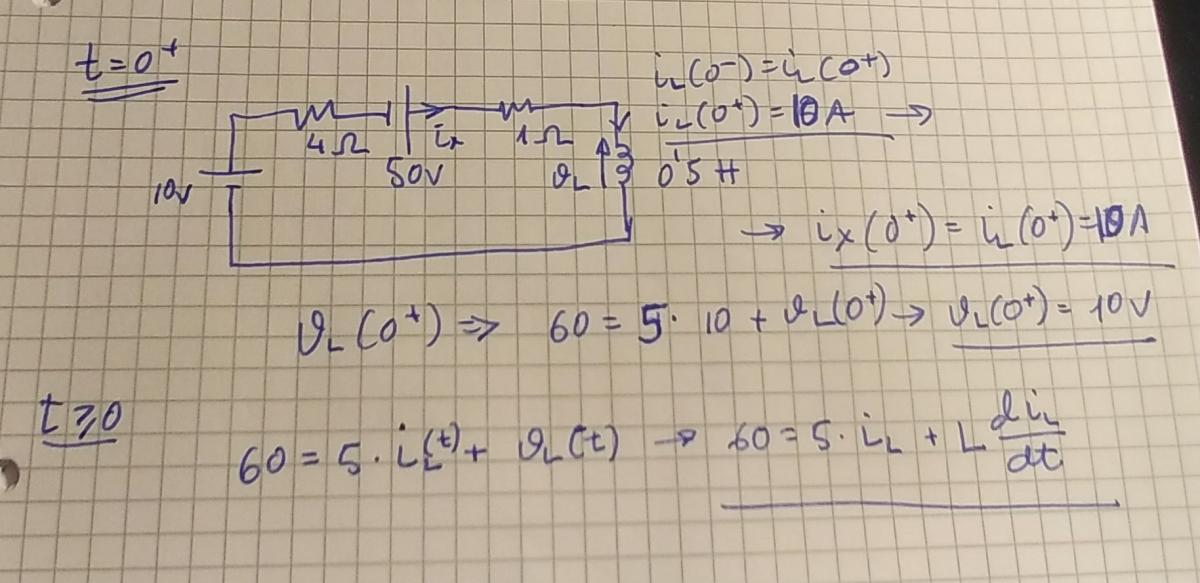 t=0⁺
i_L(0⁻)=i_L(0⁺)
i_L(0⁺)=10A →
4Ω
i_x
1Ω
50V
10V
ϑ_L
0,5 H
→ i_x(0⁺)= i_L(0⁺)=10A
ϑ_L(0⁺) ⇒ 60=5·10+ϑ_L(0⁺)→ ϑ_L(0⁺)=10V
t⩾0
60=5·i_L(t)+ ϑ_L(t) → 60=5·i_L + L di_L/dt